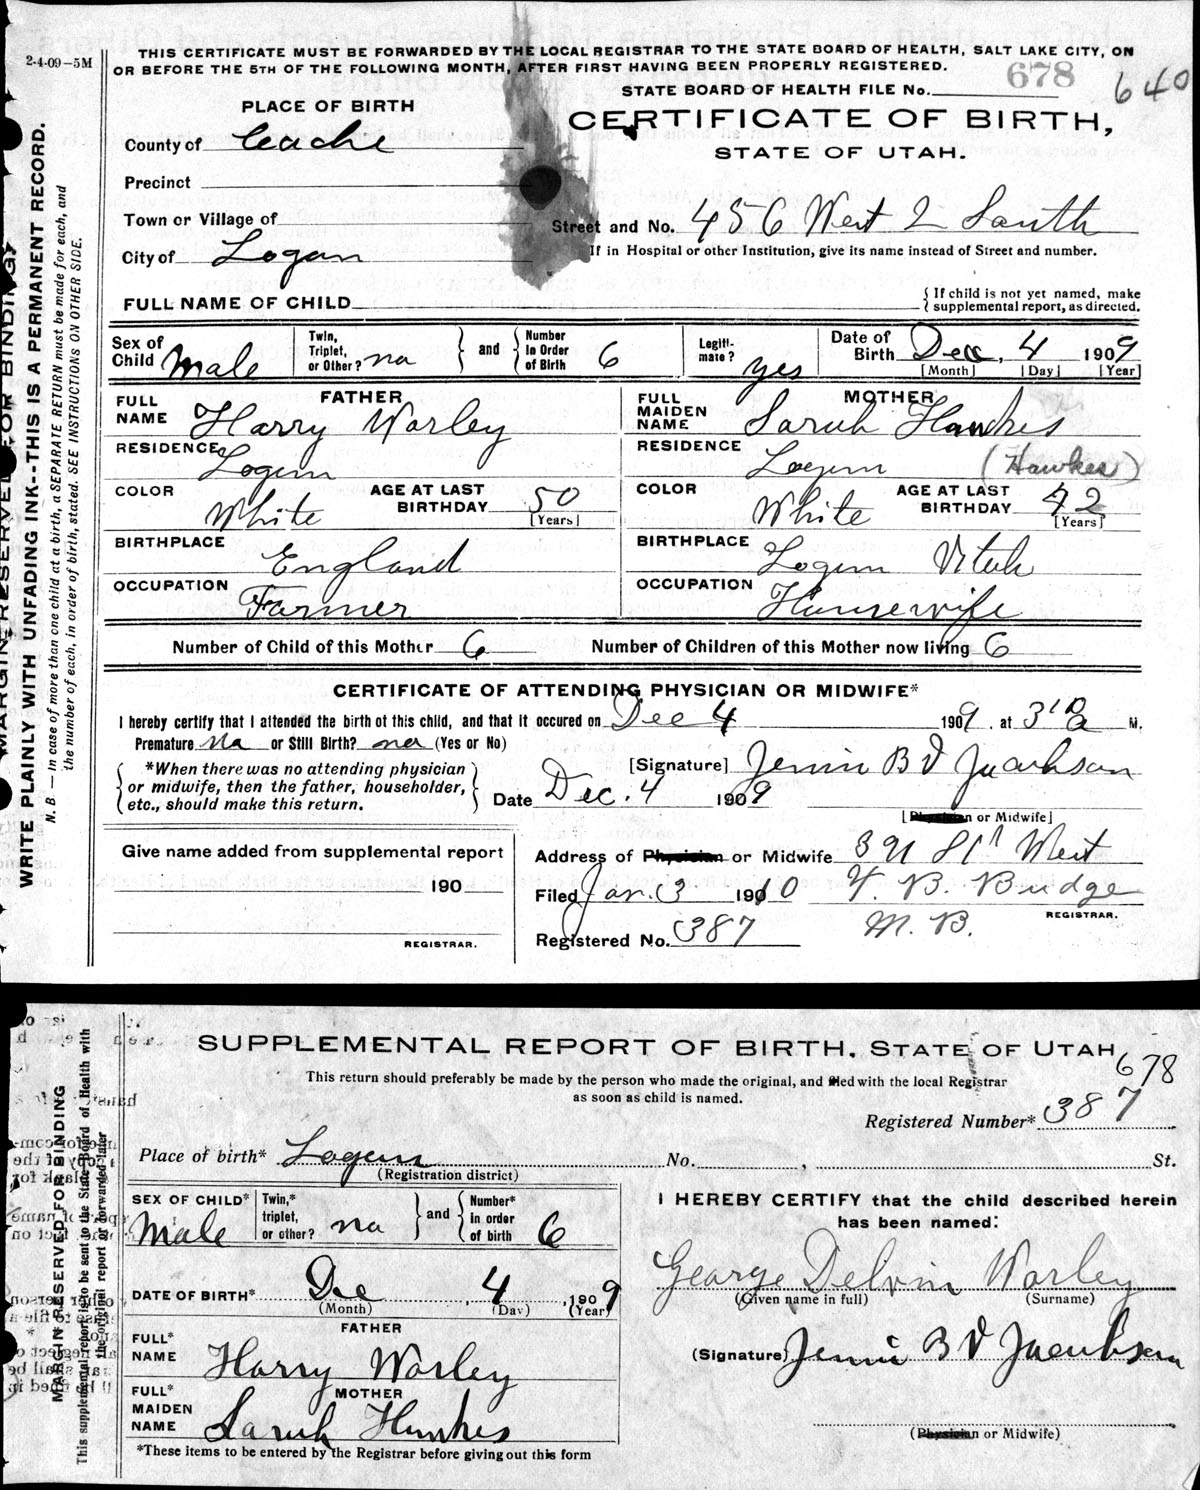 2-4-09-5M
THIS CERTIFICATE MUST BE FORWARDED BY THE LOCAL REGISTRAR TO THE STATE BOARD OF HEALTH, SALT LAKE CITY, ON
OR BEFORE THE 5TH OF THE FOLLOWING MONTH, AFTER FIRST HAVING BEEN PROPERLY REGISTERED.
STATE BOARD OF HEALTH FILE No. 678 640
PLACE OF BIRTH
CERTIFICATE OF BIRTH,
STATE OF UTAH.
County of Cache
Precinct
Town or Village of
Street and No. 456 West 2 South
City of Logan
If in Hospital or other Institution, give its name instead of Street and number.
FULL NAME OF CHILD
{ If child is not yet named, make
supplemental report, as directed.
Sex of Child Male
Twin, Triplet, or Other? no } and { Number In Order of Birth 6
Legiti-mate? yes
Date of Birth Dec. 4 1909
[Month] [Day] [Year]
FATHER
FULL NAME Harry Worley
RESIDENCE Logan
COLOR White
AGE AT LAST BIRTHDAY 50
[Years]
BIRTHPLACE England
OCCUPATION Farmer
MOTHER
FULL MAIDEN NAME Sarah Hawkes
RESIDENCE Logan (Hawkes)
COLOR White
AGE AT LAST BIRTHDAY 42
[Years]
BIRTHPLACE Logan Utah
OCCUPATION Housewife
Number of Child of this Mother 6 Number of Children of this Mother now living 6
CERTIFICATE OF ATTENDING PHYSICIAN OR MIDWIFE*
I hereby certify that I attended the birth of this child, and that it occured on Dec 4 1909. at 3 a M.
Premature no or Still Birth? no (Yes or No)
{ *When there was no attending physician
or midwife, then the father, householder,
etc., should make this return. }
[Signature] Jennie B V Jacobson
Date Dec. 4 1909
[Physician or Midwife]
Give name added from supplemental report
190
REGISTRAR.
Address of Physician or Midwife West
Filed Jan. 3 1910 T. B. Budge
REGISTRAR.
Registered No. 387
WRITE PLAINLY WITH UNFADING INK--THIS IS A PERMANENT RECORD.
N. B. — In case of more than one child at a birth, a SEPARATE RETURN must be made for each, and
the number of each, in order of birth, stated. SEE INSTRUCTIONS ON OTHER SIDE.
MARGIN RESERVED FOR BINDING
SUPPLEMENTAL REPORT OF BIRTH. STATE OF UTAH
678
This return should preferably be made by the person who made the original, and filed with the local Registrar
as soon as child is named.
Registered Number* 387
Place of birth* Logan No. , St.
(Registration district)
SEX OF CHILD* Male
Twin,* triplet, or other? no } and { Number* in order of birth 6
DATE OF BIRTH* Dec 4, 1909
(Month) (Day) (Year)
FATHER
FULL* NAME Harry Worley
MOTHER
FULL* MAIDEN NAME Sarah Hawkes
*These items to be entered by the Registrar before giving out this form
I HEREBY CERTIFY that the child described herein
has been named:
George Delvin Worley
(Given name in full) (Surname)
(Signature) Jennie B V Jacobson
(Physician or Midwife)
MARGIN RESERVED FOR BINDING
This supplemental report is to be sent to the State Board of Health with
the original report or forwarded later